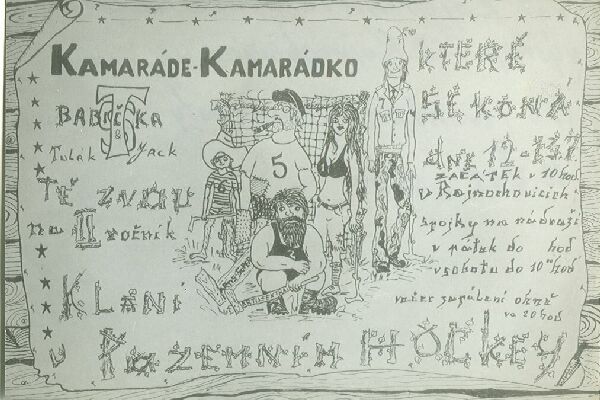 KAMARÁDE-KAMARÁDKO
BABIČKA
&
Tulák Jack
TĚ ZVOU
na II. ročník
KLÁNÍ
v POZEMNÍM HÓCKEY
KTERÉ
SE KONÁ
dne 12.
ZAČÁTEK v 10 hod
v Rajnochovicích
spojky na nádraží
v pátek do hod
v sobotu do 10 hod
večer zapálení ohně
ve 20 hod
5